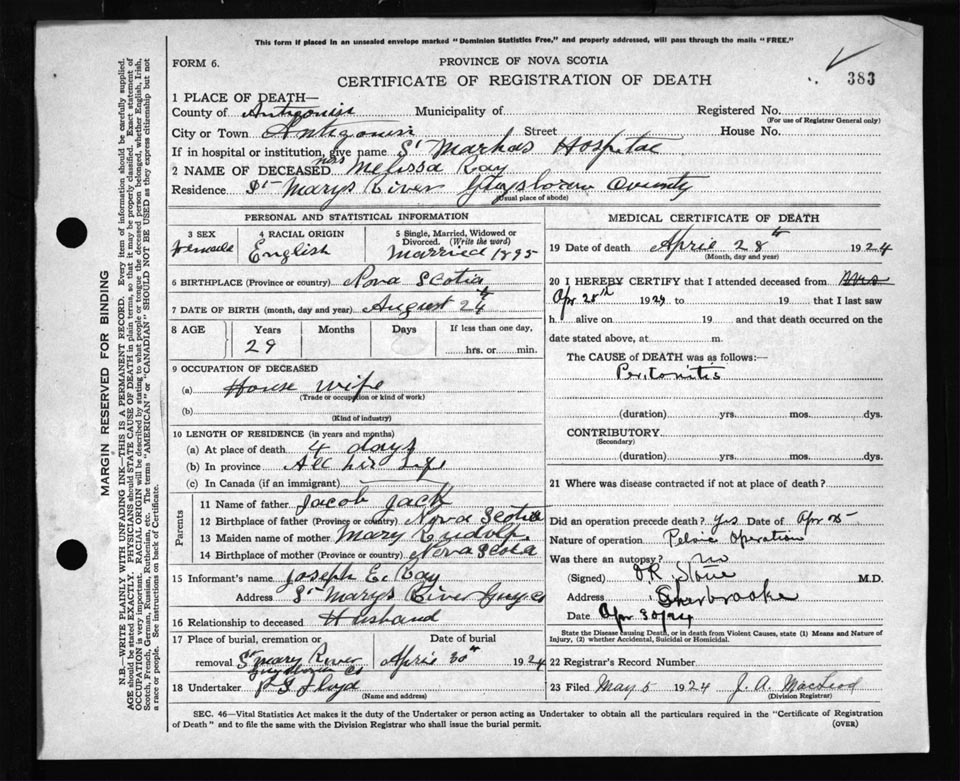 This form if placed in an unsealed envelope marked "Dominion Statistics Free," and properly addressed, will pass through the mails "FREE."
FORM 6.
PROVINCE OF NOVA SCOTIA
CERTIFICATE OF REGISTRATION OF DEATH
383
1 PLACE OF DEATH—
County of Antigonish Municipality of Registered No.
(For use of Registrar General only)
City or Town Antigonish Street House No.
If in hospital or institution, give name St Marthas Hospital
2 NAME OF DECEASED Mrs Melissa Ray
Residence St Marys River Guysboro County
(Usual place of abode)
PERSONAL AND STATISTICAL INFORMATION
3 SEX Female
4 RACIAL ORIGIN English
5 Single, Married, Widowed or Divorced. (Write the word) Married 1895
6 BIRTHPLACE (Province or country) Nova Scotia
7 DATE OF BIRTH (month, day and year) August 24th
8 AGE Years Months Days If less than one day,
29 hrs. or min.
9 OCCUPATION OF DECEASED
(a) House wife
(Trade or occupation or kind of work)
(b)
(Kind of industry)
10 LENGTH OF RESIDENCE (in years and months)
(a) At place of death 4 days
(b) In province All her Life
(c) In Canada (if an immigrant)
Parents
11 Name of father Jacob Jack
12 Birthplace of father (Province or country) Nova Scotia
13 Maiden name of mother Mary Rudolph
14 Birthplace of mother (Province or country) Nova Scotia
15 Informant's name Joseph E. Ray
Address St Marys River Guy Co
16 Relationship to deceased Husband
17 Place of burial, cremation or removal St Mary River Guysboro Co
Date of burial April 30th 1924
18 Undertaker Floyd
(Name and address)
MEDICAL CERTIFICATE OF DEATH
19 Date of death April 28th 1924
(Month, day and year)
20 I HEREBY CERTIFY that I attended deceased from Mrs
Apr 28th 1924 to 19 that I last saw
h alive on 19 and that death occurred on
date stated above, at m.
The CAUSE of DEATH was as follows:—
Peritonitis
(duration) yrs. mos. dys.
CONTRIBUTORY
(Secondary)
(duration) yrs. mos. dys.
21 Where was disease contracted if not at place of death?
Did an operation precede death? Yes Date of Apr 25
Nature of operation Pelvic Operation
Was there an autopsy? no
(Signed) M.D.
Address Sherbrooke
Date Apr 30/24
State the Disease causing Death, or in death from Violent Causes, state (1) Means and Nature of Injury, (2) whether Accidental, Suicidal or Homicidal.
22 Registrar's Record Number
23 Filed May 5 1924 J. A. MacLeod
(Division Registrar)
SEC. 46—Vital Statistics Act makes it the duty of the Undertaker or person acting as Undertaker to obtain all the particulars required in the "Certificate of Registration
of Death" and to file the same with the Division Registrar who shall issue the burial permit. (OVER)
MARGIN RESERVED FOR BINDING
N.B.—WRITE PLAINLY WITH UNFADING INK—THIS IS A PERMANENT RECORD. Every item of information should be carefully supplied.
AGE should be stated EXACTLY. PHYSICIANS should STATE CAUSE OF DEATH in plain terms, so that it may be properly classified. Exact statement of
OCCUPATION is very important. RACIAL ORIGIN will be described by stating to what people or tongue the deceased person belonged, whether English, Irish,
Scotch, French, German, Russian, Ruthenian, etc. The terms "AMERICAN" or "CANADIAN" SHOULD NOT BE USED as they express citizenship but not
a race or people. See instructions on back of Certificate.